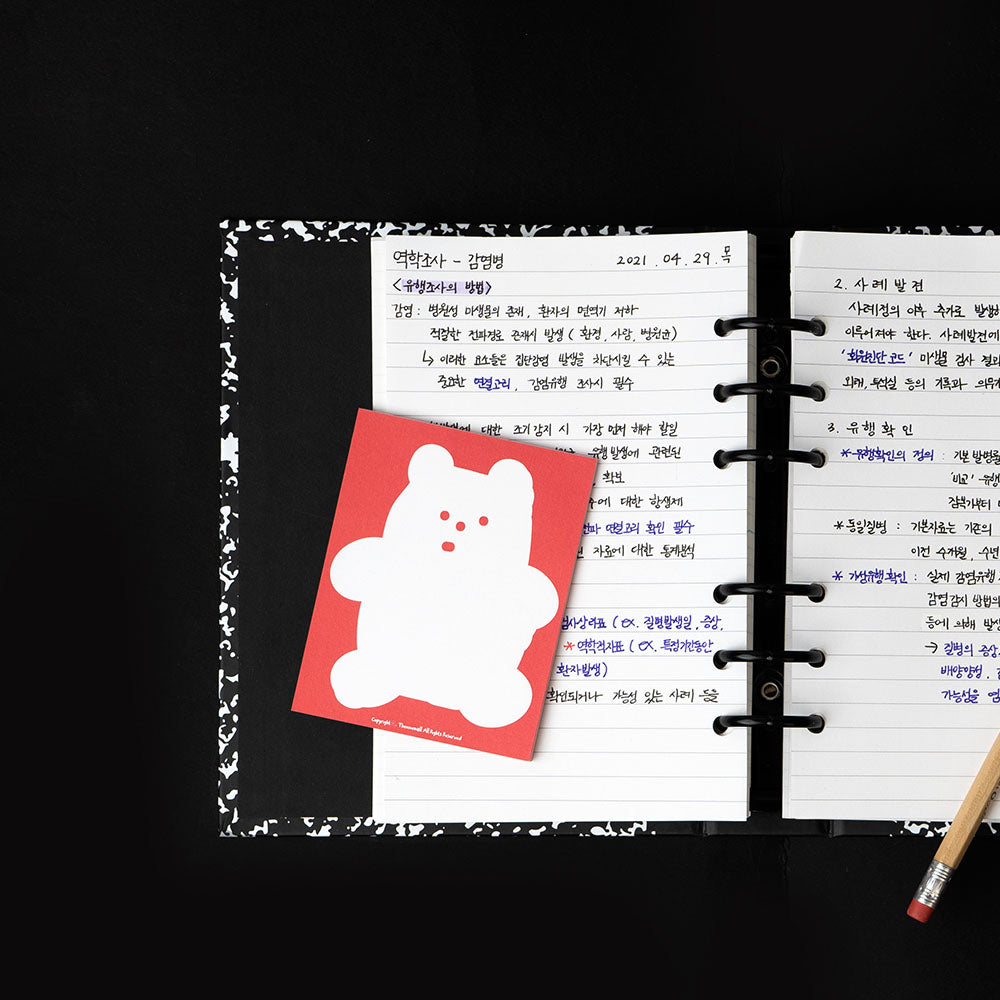 역학조사 - 감염병 2021.04.29.목
<유행조사의 방법>
감염 : 병원성 미생물의 존재, 환자의 면역기 저하
적절한 전파경로 존재시 발생 ( 환경, 사람, 병원균)
↳ 이러한 요소들은 집단감염 발생을 차단시킬 수 있는
중요한 연결고리, 감염유행 조사시 필수
대한 조기감지 시 가장 먼저 해야 할일
유행발생에 관련된
확보
에 대한 항생제
연결고리 확인 필수
자료에 대한 통계분석
검사상하표 ( ex. 질병발생일, 증상,
* 역학적자표 ( ex. 특정기간동안
환자발생)
확인되거나 가능성 있는 사례 등을
Copyright All Rights Reserved
2. 사례발견
사례정의 이후 추가로 발생
이루어져야 한다. 사례발견에
'회원진단코드' 미생물 검사 결과
외래, 투석실 등의 기록과 의무
3. 유행확인
* 유행확인의 정의 : 기본 발병률
'비교' 유행
잠복기부터
* 동일질병 : 기본자료는 기존의
이전 수개월, 수년
* 가성유행확인 : 실제 감염유행
감염감시 방법의
등에 의해 발생
→ 질병의 증상
배양양성,
가능성을